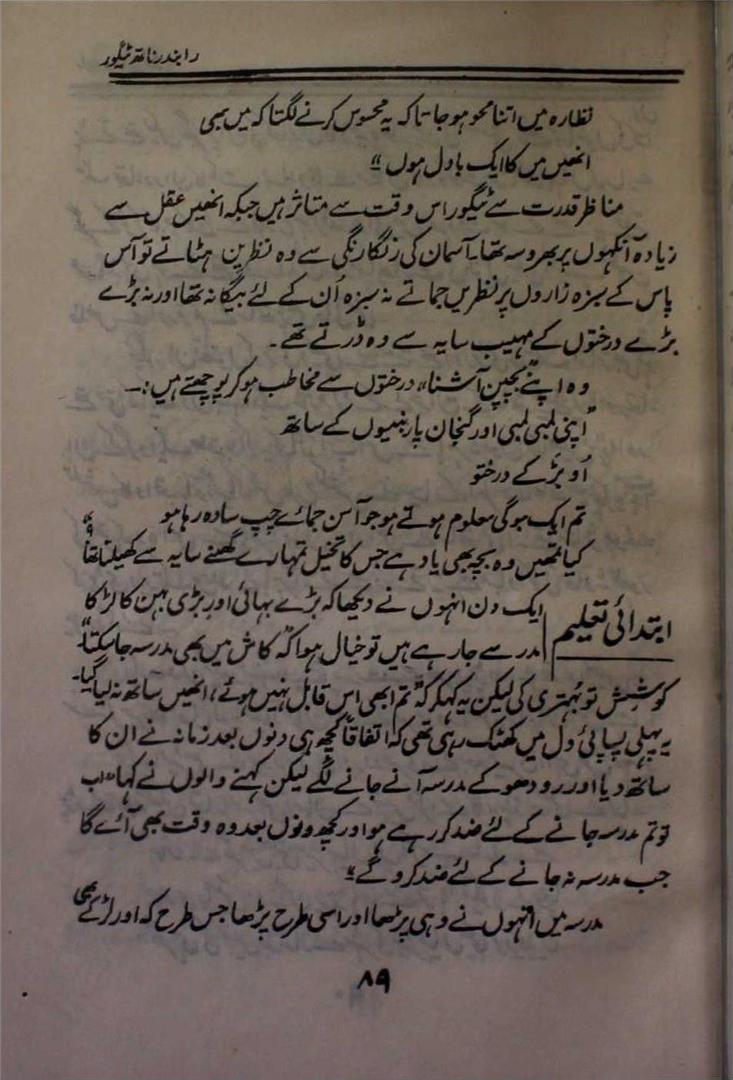 رابندرناتھ ٹیگور
نظارہ میں اتنا محو ہو جاتا کہ یہ محسوس کرنے لگتا کہ میں بھی
انھیں میں کا ایک بادل ہوں"
مناظر قدرت سے ٹیگور اس وقت سے متاثر ہیں جبکہ انھیں عقل سے
زیادہ آنکھوں پر بھروسہ تھا۔ آسمان کی رنگا رنگی سے وہ نظریں ہٹاتے تو آس
پاس کے سبزہ زاروں پر نظریں جماتے نہ سبزہ اُن کے لئے بیگانہ تھا اور نہ بڑے
بڑے درختوں کے مہیب سایہ سے وہ ڈرتے تھے۔
وہ اپنے "بچپن آشنا" درختوں سے مخاطب ہو کر پوچھتے ہیں:۔
"اپنی لمبی لمبی اور گنجان پارٹہنیوں کے ساتھ
اُو بڑ کے درختو
تم ایک جوگی معلوم ہوتے ہو جو آسن جمائے چپ سادہ رہا ہو
کیا تمھیں وہ بچہ بھی یاد ہے جس کا تخیل تمہارے گھنے سایہ سے کھیلتا تھا؟"
ابتدائی تعلیم ایک دن انہوں نے دیکھا کہ بڑے بہائی اور بڑی بہن کا لڑکا
مدرسے جا رہے ہیں تو خیال ہوا کہ "کاش میں بھی مدرسہ جا سکتا"۔
کوشش تو بُہتری کی لیکن یہ کہکر کہ "تم ابھی اس قابل نہیں ہوئے" انھیں ساتھ نہ لیا گیا۔
یہ پہلی پسپائی دل میں کھٹک رہی تھی کہ اتفاقاً کچھ ہی دنوں بعد زمانہ نے ان کا
ساتھ دیا اور رو دھو کے مدرسہ آنے جانے لگے لیکن کہنے والوں نے کہا "اب
تو تم مدرسہ جانے کے لئے ضد کر رہے ہو اور کچھ دنوں بعد وہ وقت بھی آئے گا
جب مدرسہ نہ جانے کے لئے ضد کرو گے"
مدرسہ میں انہوں نے وہی پڑھا اور اسی طرح پڑھا جس طرح کہ اور لڑکے بھی
۸۹